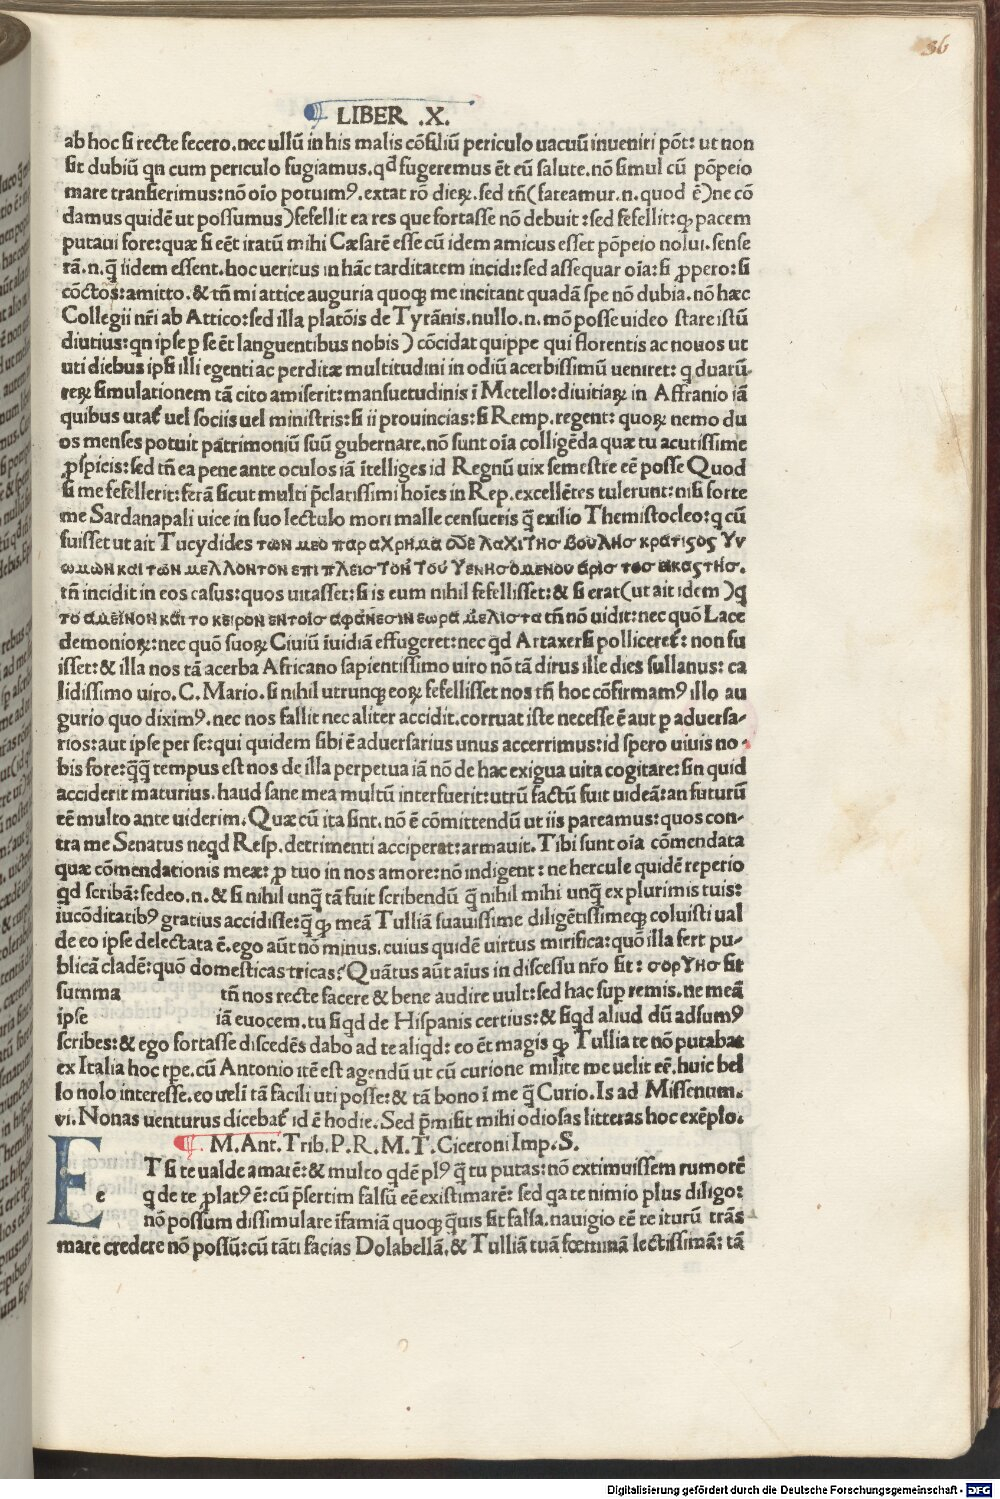 36
LIBER .X.
ab hoc si recte fecero.nec ullū in his malis cōsiliū periculo uacuū inueniri pōt: ut non
sit dubiū qn cum periculo fugiamus.qđ fugeremus ēt cū salute.nō simul cū pōpeio
mare transierimus:nō oīo potuimꝰ.extat rō dieꝝ.sed tn̄(fateamur.n.quod ē)ne cō
damus quidē ut possumus)fefellit ea res que fortasse nō debuit:sed fefellit:ꝙ pacem
putaui fore:quæ si eēt iratū mihi Cæsarē esse cū idem amicus esset pōpeio nolui.sense
rā.n.q̄ iidem essent.hoc ueritus in hāc tarditatem incidi:sed assequar oīa:si ꝓpero:si
cōctos:amitto.& tn̄ mi attice auguria quoqꝫ me incitant quadā spe nō dubia.nō hæc
Collegii nr̄i ab Attico:sed illa platōis de Tyrānis.nullo.n.mō posse uideo stare istū
diutius:qn ipse p se ēt languentibus nobis)cōcidat quippe qui florentis ac nouos ut
uti diebus ipsi illi egenti ac perditæ multitudini in odiū acerbissimū ueniret: q duarū
reꝝ simulationem tā cito amiserit:mansuetudinis ī Metello:diuitiaꝝ in Affranio iā
quibus utat᷑ uel sociis uel ministris:si ii prouincias:si Remp.regent:quoꝝ nemo du
os menses potuit patrimoniū suū gubernare.nō sunt oīa colligēda quæ tu acutissime
ꝓspicis:sed tn̄ ea pene ante oculos iā ītelliges id Regnū uix semestre eē posse Quod
si me fefellerit:ferā sicut multi p̄clatissimi hoīes in Rep.excellētes tulerunt:nisi forte
me Sardanapali uice in suo lectulo mori malle censueris q̄ exilio Themistocleo:q cū
fuisset ut ait Tucydides των μεο παραχρημα οδε λαχιτησ βουλησ κρατιςος γν
ωμων και των μελλοντον επι πλειστον του γενησομενου αρισ τοσ εικαςτησ.
tn̄ incidit in eos casus:quos uitasset:si is eum nihil fefellisset:& si erat(ut ait idem )q
το αμεινον και το κειρον εντοισ αφανεσιν εωρα μελιστα tn̄ nō uidit:nec quō Lace
demonioꝝ:nec quō suoꝝ Ciuiū īuidiā effugeret:nec qđ Artaxersi polliceret᷑: non fu
isset:& illa nos tā acerba Africano sapientissimo uiro nō tā dirus ille dies sullanus: ca
lidissimo uiro.C.Mario.si nihil utrunqꝫ eoꝝ fefellisset nos tn̄ hoc cōfirmamꝰ illo au
gurio quo diximꝰ.nec nos fallit nec aliter accidit.corruat iste necesse ē aut p aduersa-
rios:aut ipse per se:qui quidem sibi ē aduersarius unus accerrimus:id spero uiuis no-
bis fore:q̄q̄ tempus est nos de illa perpetua iā nō de hac exigua uita cogitare:sin quid
acciderit maturius.haud sane mea multū interfuerit:utrū factū fuit uideā:an futurū
eē multo ante uiderim.Quæ cū ita sint.nō ē cōmittendū ut iis pareamus:quos con-
tra me Senatus neqd Resp.detrimenti acciperat:armauit.Tibi sunt oīa cōmendata
quæ cōmendationis meæ:ꝓ tuo in nos amore:nō indigent:ne hercule quidē reperio
qđ scribā:sedeo.n.& si nihil unq̄ tā fuit scribendū q̄ nihil mihi unq̄ ex plurimis tuis:
iucōditatibꝰ gratius accidisse:q̄ ꝙ meā Tulliā suauissime diligētissimeqꝫ coluisti ual
de eo ipse delectata ē.ego aūt nō minus.cuius quidē uirtus mirifica:quō illa fert pu-
blicā cladē:quō domesticas tricas?Quātus aūt aīus in discessu nr̄o sit:σοργησ sit
summa tn̄ nos recte facere & bene audire uult:sed hac sup remis.ne meā
ipse iā euocem.tu siqd de Hispanis certius:& siqd aliud dū adsumꝰ
scribes:& ego fortasse discedēs dabo ad te aliqd:eo ēt magis ꝙ Tullia te nō putabat
ex Italia hoc tpe.cū Antonio itē est agendū ut cū curione milite me uelit eē.huic bel
lo nolo interesse.eo utēli tā facili uti posse:& tā bono ī me q̄ Curio.Is ad Missenum.
vi.Nonas uenturus dicebat᷑ id ē hodie.Sed p̄misit mihi odiosas litteras hoc exēplo.
M.Ant.Trib.P.R.M.T.Ciceroni Imp.S.
E e T si te ualde amarē:& multo qdē plꝰ q̄ tu putas:nō extimuissem rumorē
q de te ꝓlatꝰ ē:cū p̄sertim falsū eē existimarē: sed qa te nimio plus diligo:
nō possum dissimulare īfamiā quoqꝫ q̄uis sit falsa.nauigio eē te iturū trās
mare credere nō possū:cū tāti facias Dolabellā.& Tulliā tuā fœminā lectissimā: tā
Digitalisierung gefördert durch die Deutsche Forschungsgemeinschaft - DFG